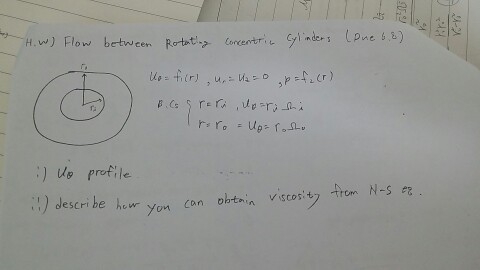 H.W) Flow between Rotating concentric cylinders (Due 6.8)
r₀
rᵢ
u_θ = f₁(r), uᵣ = u_z = 0, p = f₂(r)
B.Cs { r = rᵢ, u_θ = rᵢ Ωᵢ
r = r₀ = u_θ = r₀ Ω₀
i) u_θ profile
ii) describe how you can obtain viscosity from N-S eq.